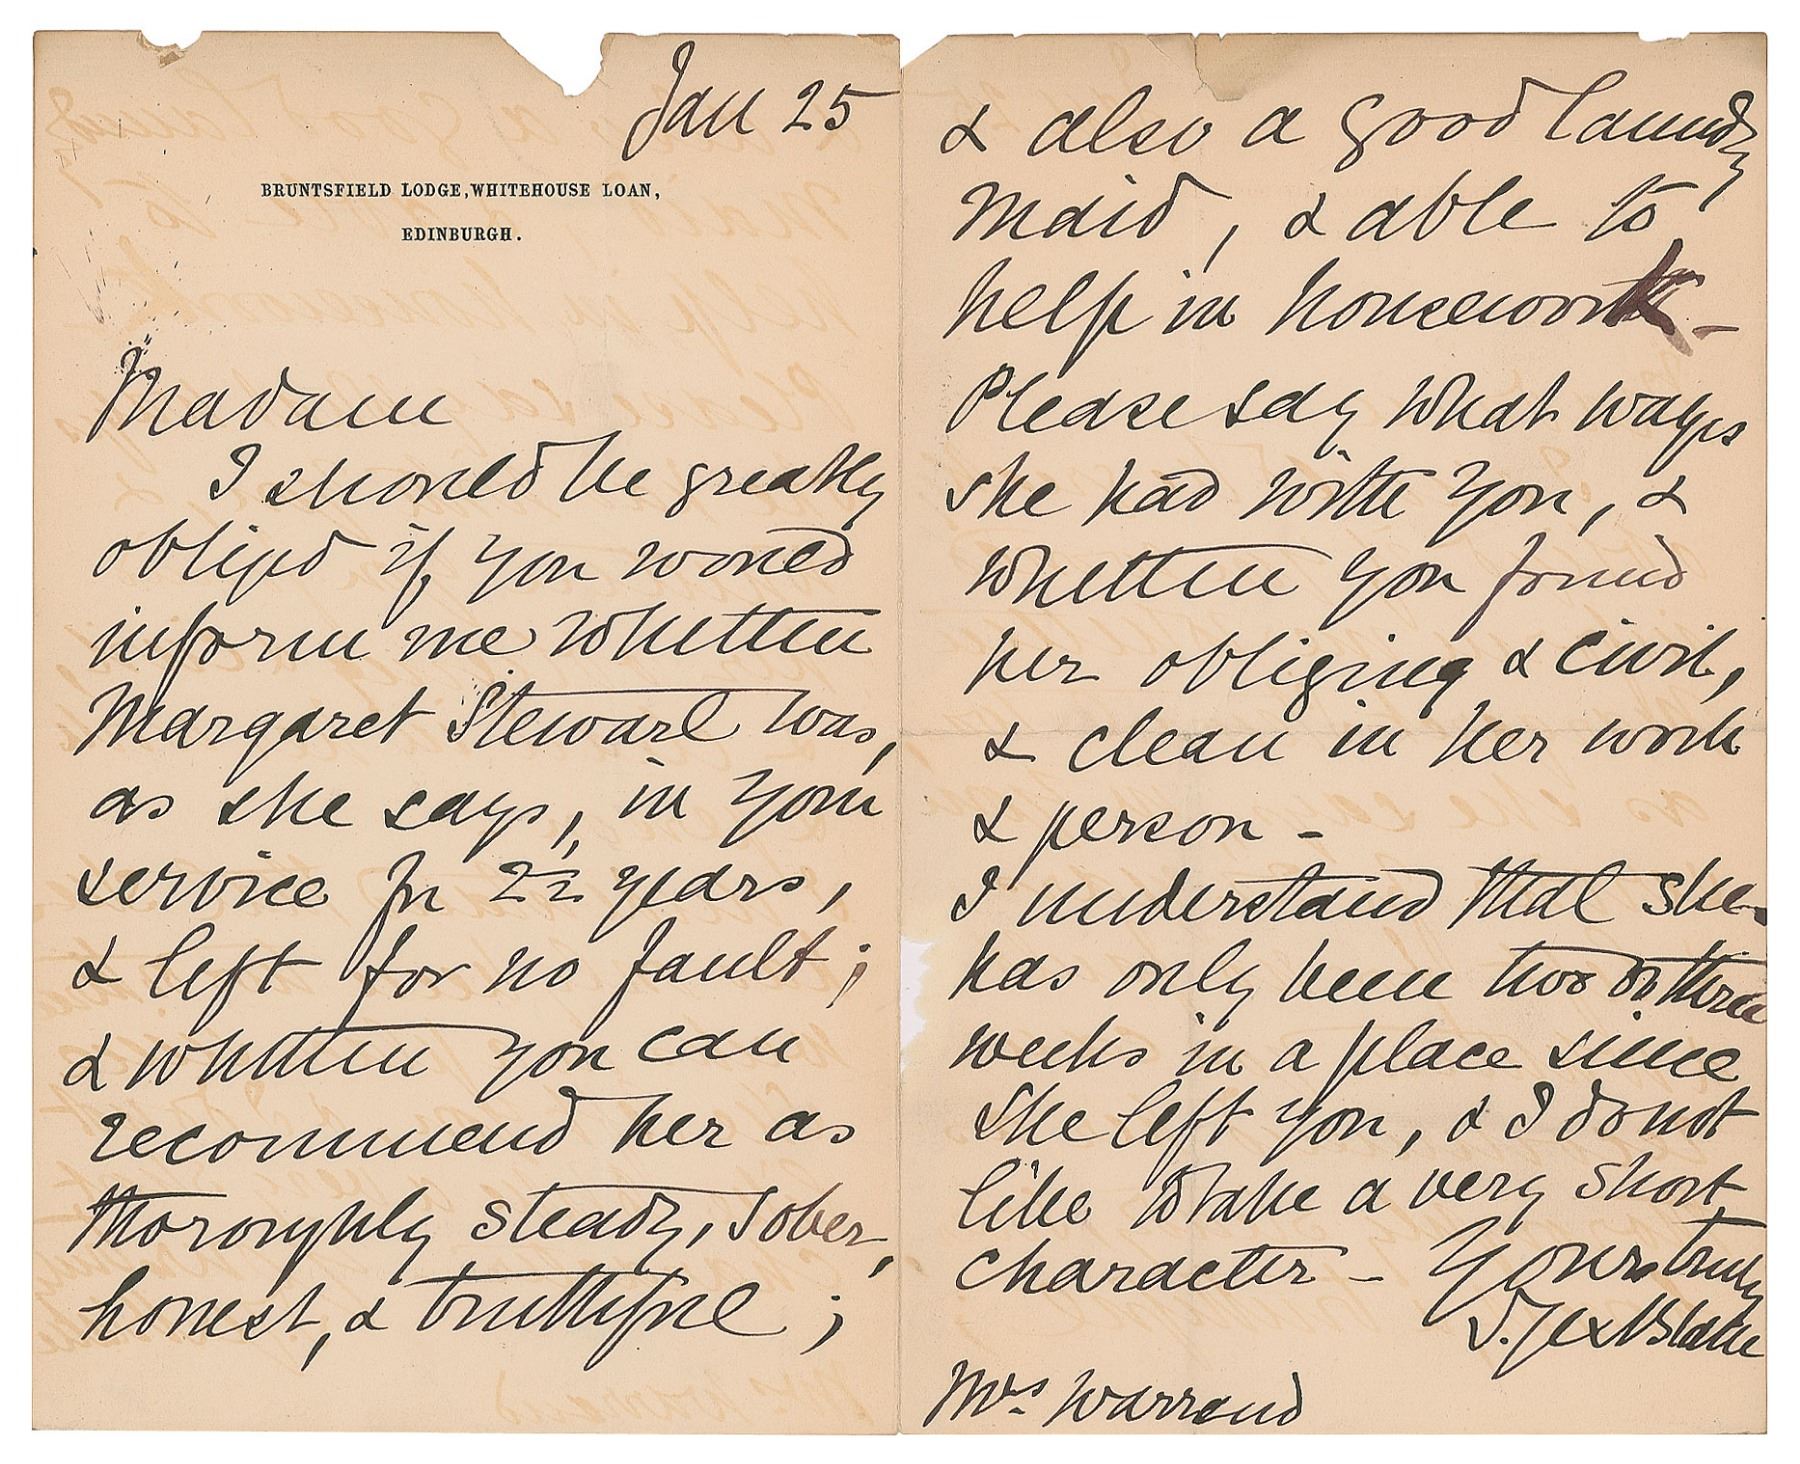 Jan 25
BRUNTSFIELD LODGE, WHITEHOUSE LOAN,
EDINBURGH.
Madam
I should be greatly
obliged if you would
inform me whether
Margaret Stewart was,
as she says, in your
service for 2½ years,
& left for no fault;
& whether you can
recommend her as
thoroughly steady, sober,
honest, & truthful;
& also a good laundry
maid, & able to
help in housework -
Please say what wages
she had with you, &
whether you found
her obliging & civil,
& clean in her work
& person -
I understand that she
has only been two or three
weeks in a place since
she left you, & I do not
like to take a very short
character - Yours truly
S. Jex-Blake
Mrs. Warrand